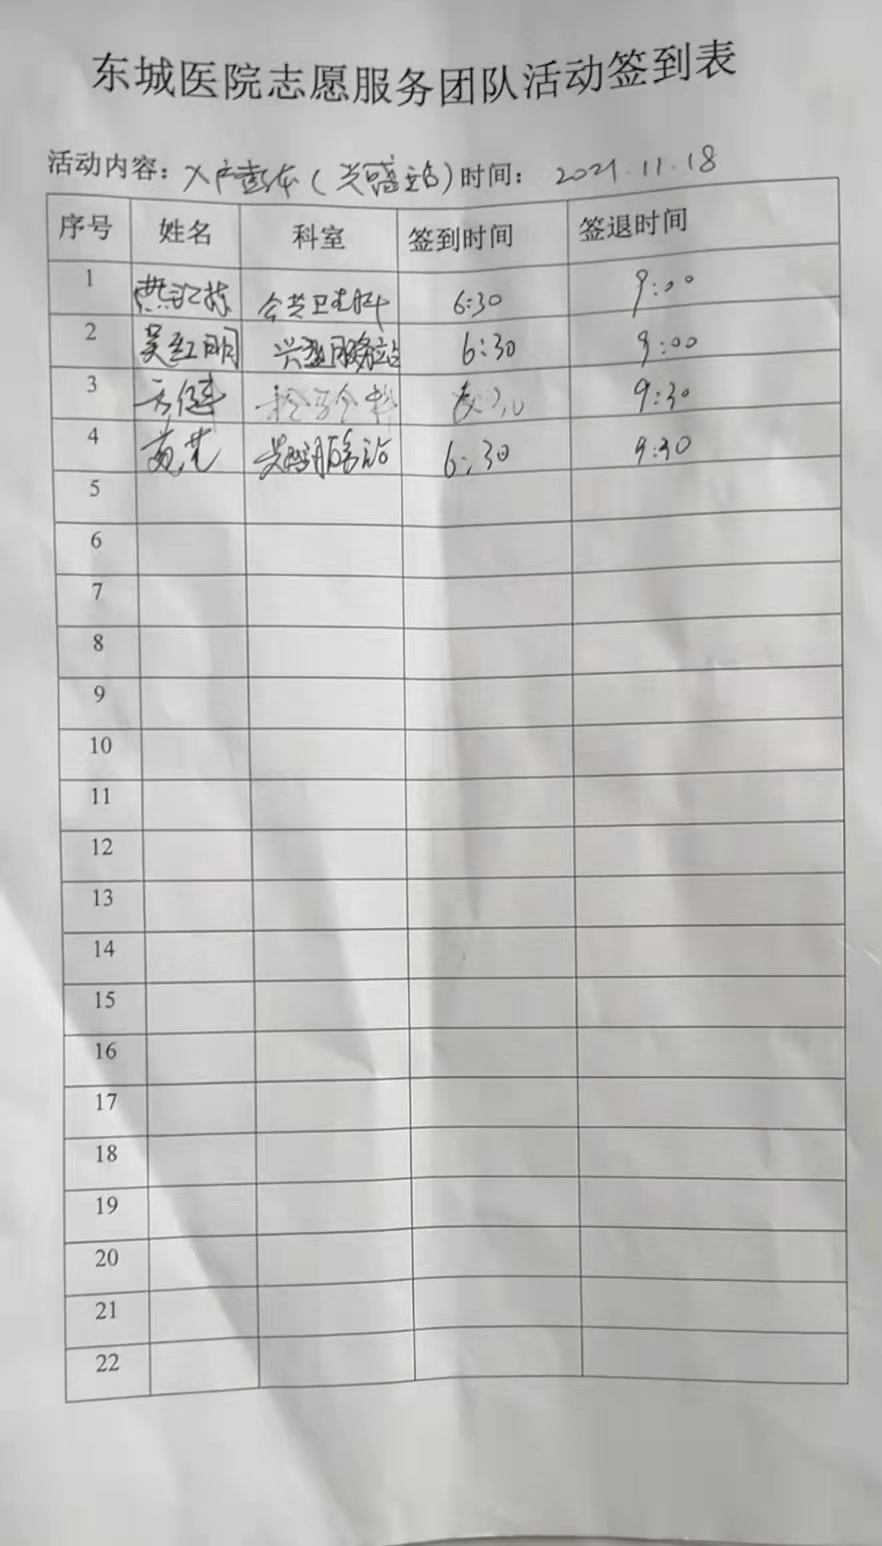 东城医院志愿服务团队活动签到表
活动内容：入户（站）时间：2021.11.18
序号 姓名 科室 签到时间 签退时间
1 公共卫生科 6:30 9:00
2 吴红明 服务站 6:30 9:00
3 9:30
4 服务站 6:30 9:30
5
6
7
8
9
10
11
12
13
14
15
16
17
18
19
20
21
22